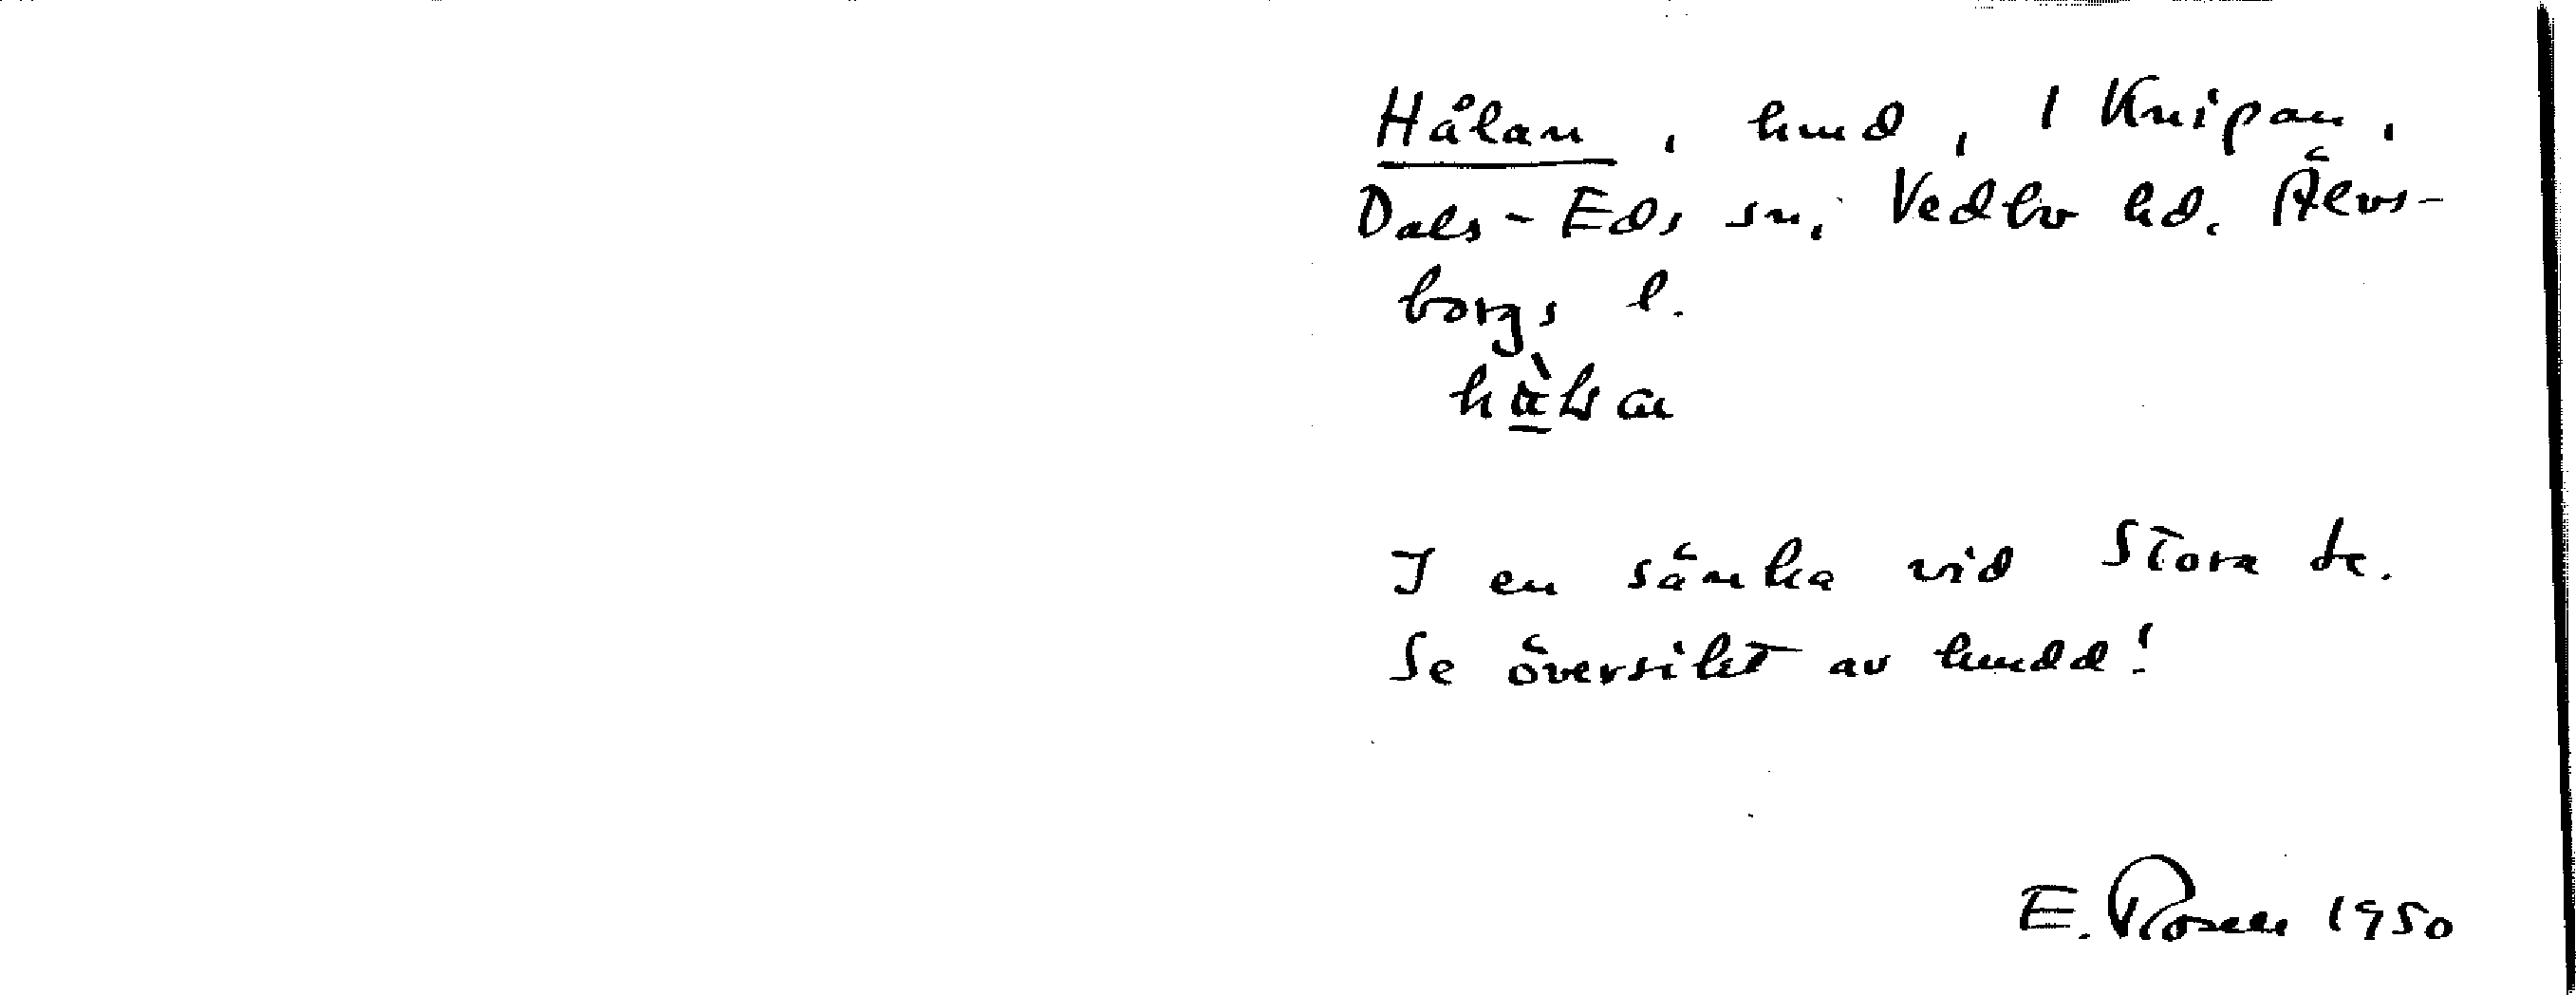 Hålan, hmd, 1 Knipan,
Dals-Eds sn, Vedbo hd. Älvs-
borgs l.
I en sänka vid Stora te.
Se översikt av hmdd!
E. Rosell 1950